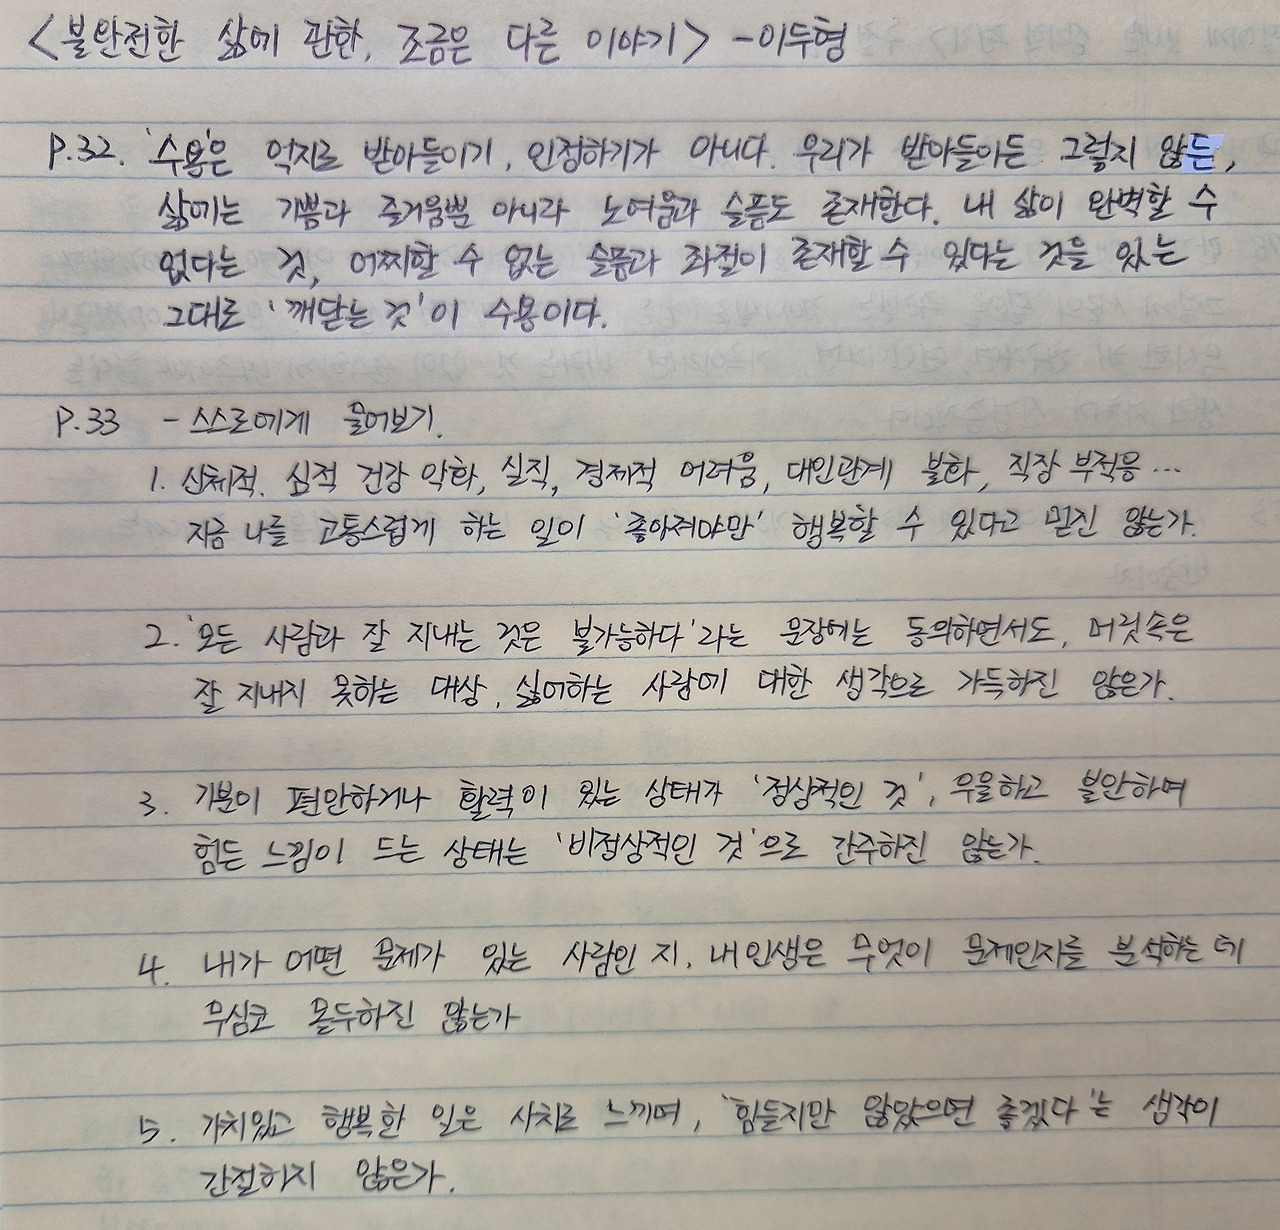 <불완전한 삶에 관한, 조금은 다른 이야기> -이두형
P.32. '수용'은 억지로 받아들이기, 인정하기가 아니다. 우리가 받아들이든 그렇지 않든,
삶에는 기쁨과 즐거움뿐 아니라 노여움과 슬픔도 존재한다. 내 삶이 완벽할 수
없다는 것, 어찌할 수 없는 슬픔과 좌절이 존재할 수 있다는 것을 있는
그대로 '깨닫는 것'이 수용이다.
P.33 - 스스로에게 물어보기.
1. 신체적. 심적 건강 악화, 실직, 경제적 어려움, 대인관계 불화, 직장 부적응...
지금 나를 고통스럽게 하는 일이 '좋아져야만' 행복할 수 있다고 믿진 않는가.
2. '모든 사람과 잘 지내는 것은 불가능하다'라는 문장에는 동의하면서도, 머릿속은
잘 지내지 못하는 대상, 싫어하는 사람에 대한 생각으로 가득하진 않은가.
3. 기분이 편안하거나 활력이 있는 상태가 '정상적인 것', 우울하고 불안하며
힘든 느낌이 드는 상태는 '비정상적인 것'으로 간주하진 않는가.
4. 내가 어떤 문제가 있는 사람인 지, 내 인생은 무엇이 문제인지를 분석하는 데
무심코 몰두하진 않는가
5. 가치있고 행복한 일은 사치로 느끼며, '힘들지만 않았으면 좋겠다'는 생각이
간절하지 않은가.